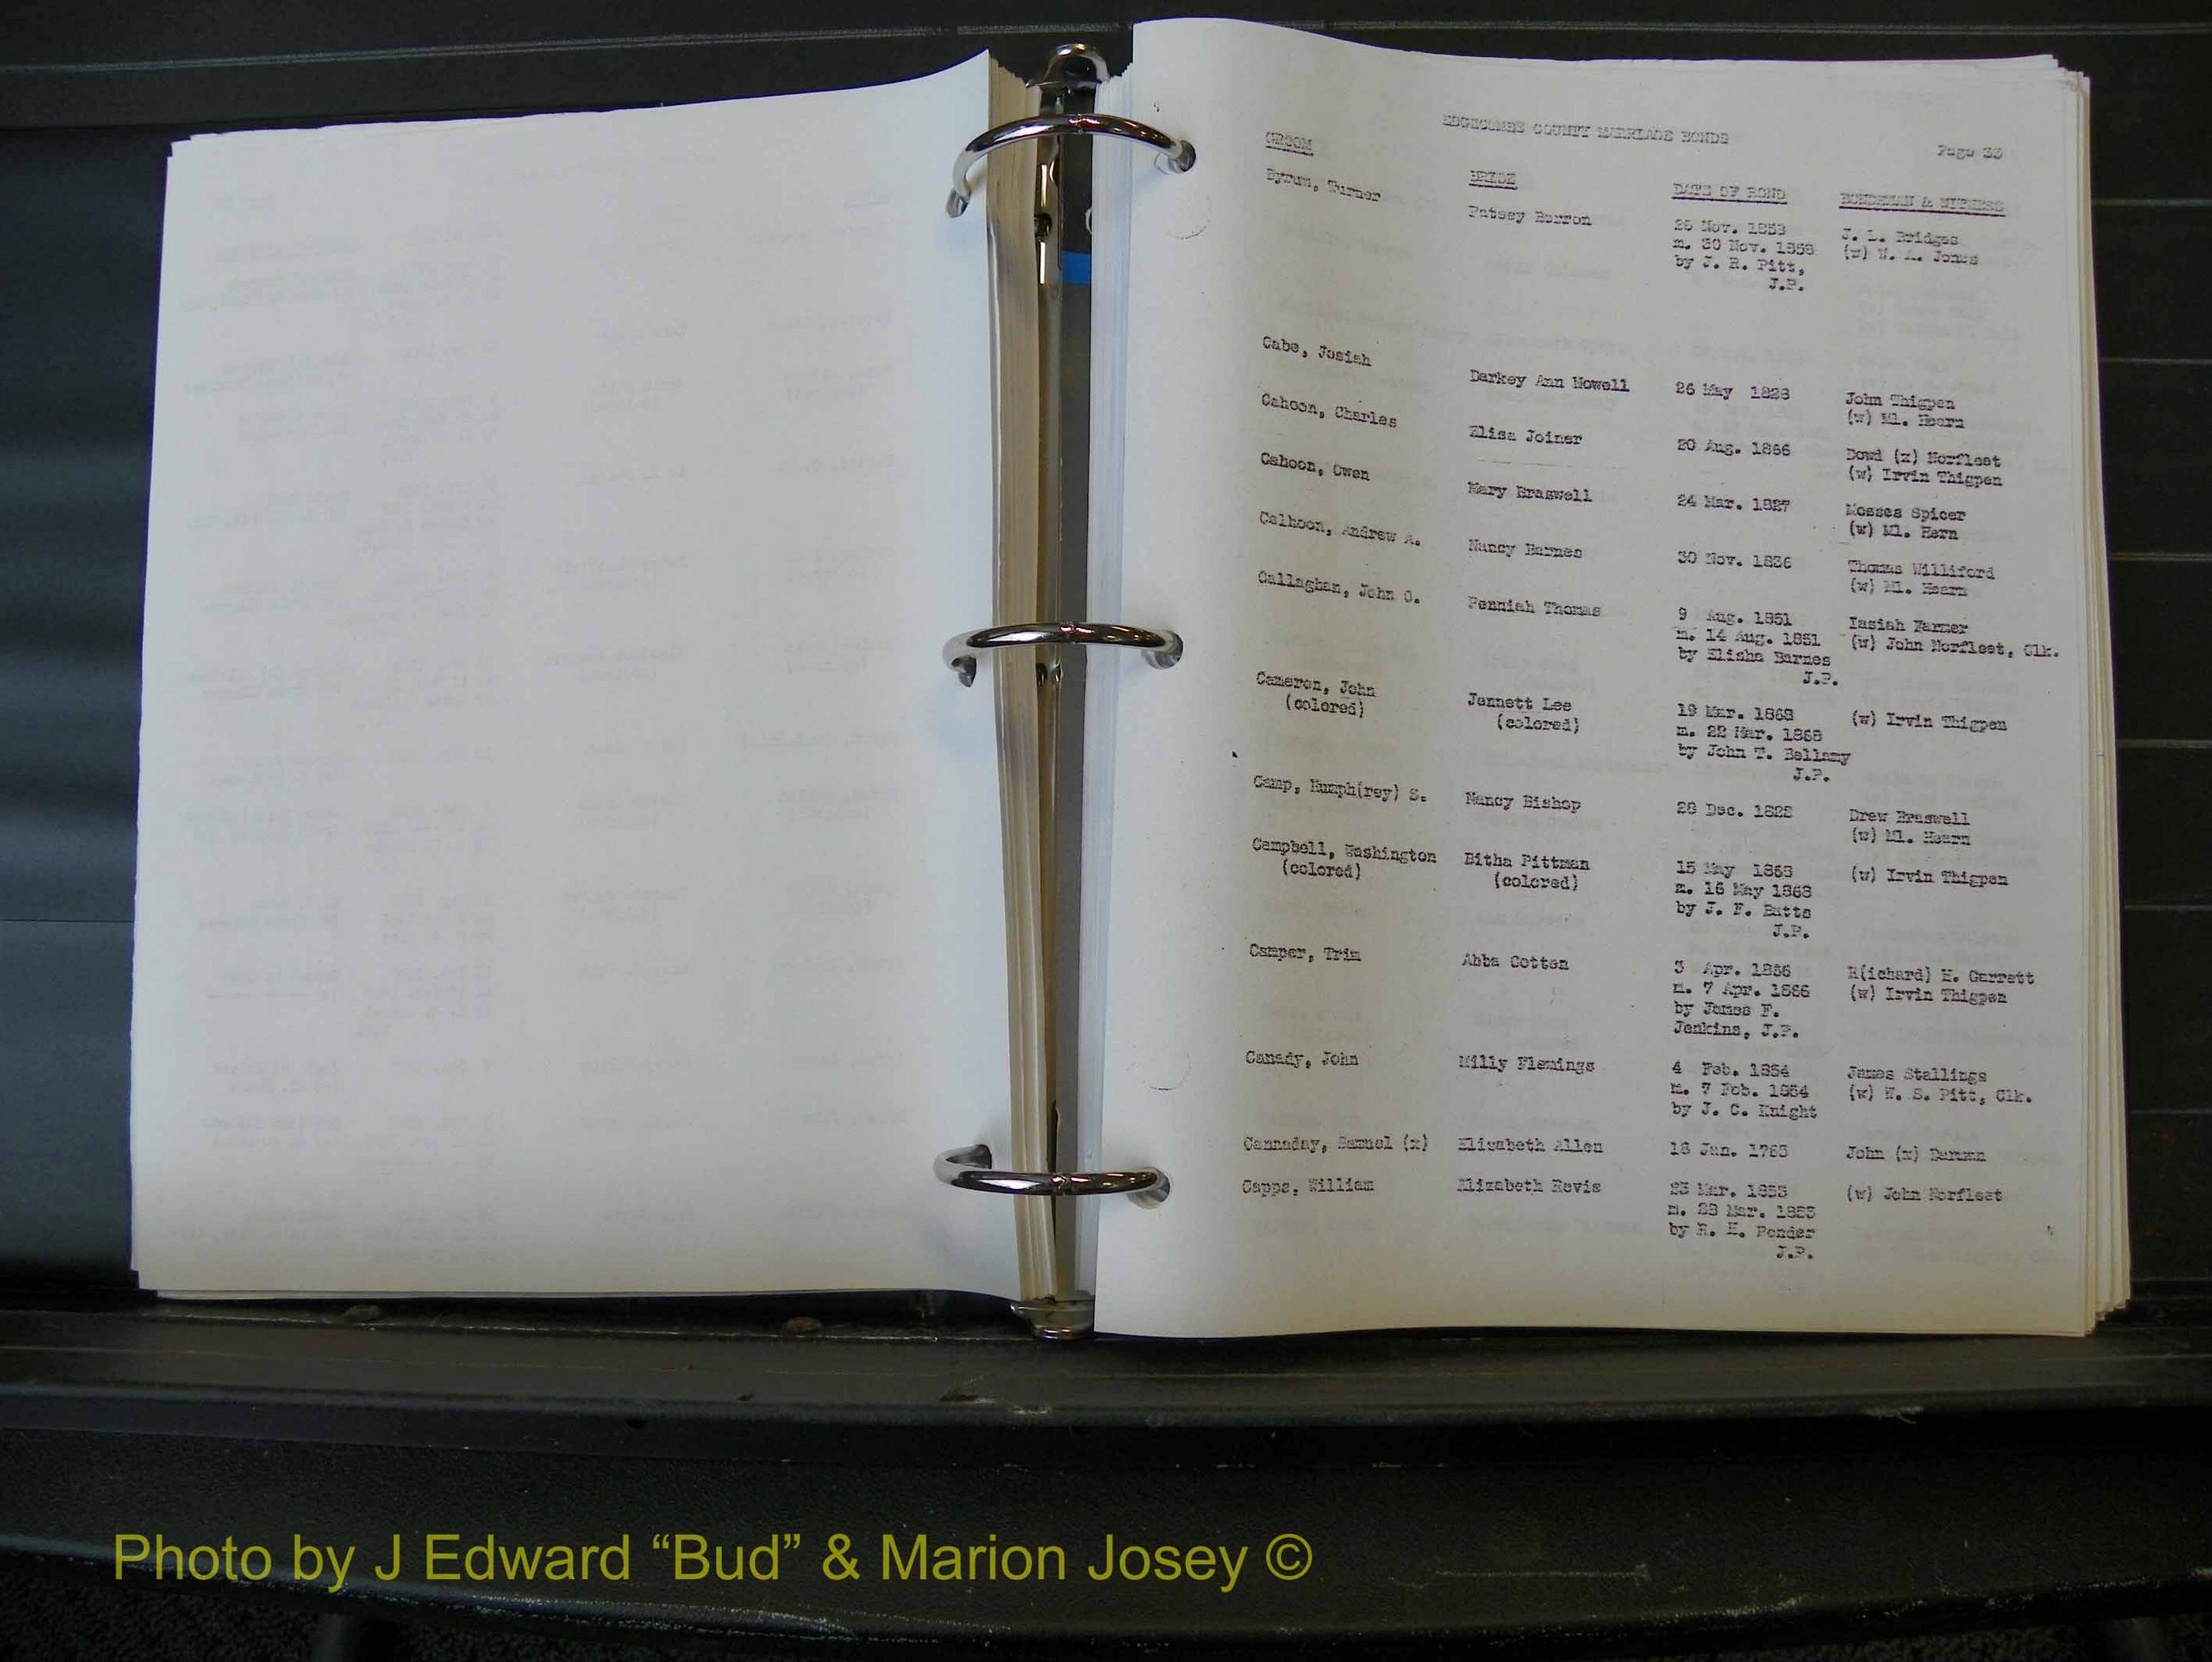 EDGECOMBE COUNTY MARRIAGE BONDS
Page 33
GROOM BRIDE DATE OF BOND BONDSMAN & WITNESS
Byrum, Turner Patsey Barron 26 Nov. 1853 J. L. Bridges
m. 30 Nov. 1853 (w) W. A. Jones
by J. R. Pitt,
J.P.
Cabe, Josiah Darkey Ann Howell 26 May 1828 John Thigpen
(w) Ml. Hearn
Cahoon, Charles Elisa Joiner 20 Aug. 1866 Dowd (x) Norfleet
(w) Irvin Thigpen
Cahoon, Owen Mary Braswell 24 Mar. 1827 Mosses Spicer
(w) Ml. Hern
Calhoon, Andrew A. Nancy Barnes 30 Nov. 1836 Thomas Williford
(w) Ml. Hearn
Callaghan, John O. Penniah Thomas 9 Aug. 1851 Iasiah Farmer
m. 14 Aug. 1851 (w) John Norfleet, Clk.
by Elisha Barnes
J.P.
Cameron, John Jennett Lee 19 Mar. 1868 (w) Irvin Thigpen
(colored) (colored) m. 22 Mar. 1868
by John T. Bellamy
J.P.
Camp, Humph(rey) S. Nancy Bishop 28 Dec. 1822 Drew Braswell
(w) Ml. Hearn
Campbell, Washington Bitha Pittman 15 May 1868 (w) Irvin Thigpen
(colored) (colored) m. 16 May 1868
by J. F. Batts
J.P.
Camper, Trim Abba Cotten 3 Apr. 1866 R(ichard) H. Garrett
m. 7 Apr. 1866 (w) Irvin Thigpen
by James F.
Jenkins, J.P.
Canady, John Milly Flemings 4 Feb. 1854 James Stallings
m. 7 Feb. 1854 (w) W. S. Pitt, Clk.
by J. C. Knight
Cannaday, Samuel (x) Elisabeth Allen 18 Jan. 1763 John (x)
Capps, William Elizabeth Revis 23 Mar. 1853 (w) John Norfleet
m. 28 Mar. 1853
by R. H. Pender
J.P.
Photo by J Edward “Bud” & Marion Josey ©